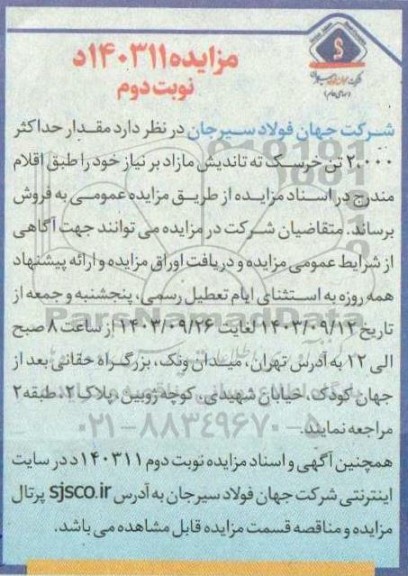 مزایده ۱۴۰۳۱۱د
نوبت دوم
شرکت جهان فولاد سیرجان در نظر دارد مقدار حداکثر
۲۰.۰۰۰ تن خرسک ته تاندیش مازاد بر نیاز خود را طبق اقلام
مندرج در اسناد مزایده از طریق مزایده عمومی به فروش
برساند. متقاضیان شرکت در مزایده می توانند جهت آگاهی
از شرایط عمومی مزایده و دریافت اوراق مزایده و ارائه پیشنهاد
همه روزه به استثنای ایام تعطیل رسمی، پنجشنبه و جمعه از
تاریخ ۱۴۰۳/۰۹/۱۲ لغایت ۱۴۰۳/۰۹/۲۶ از ساعت ۸ صبح
الی ۱۲ به آدرس تهران، میدان ونک، بزرگراه حقانی بعد از
جهان کودک، خیابان شهیدی، کوچه ژوبین، پلاک ۲، طبقه ۲
مراجعه نمایند.
همچنین آگهی و اسناد مزایده نوبت دوم ۱۴۰۳۱۱د در سایت
اینترنتی شرکت جهان فولاد سیرجان به آدرس sjsco.ir پرتال
مزایده و مناقصه قسمت مزایده قابل مشاهده می باشد.
ParsNamadData
۰۲۱-۸۸۳۴۹۶۷۰-۵